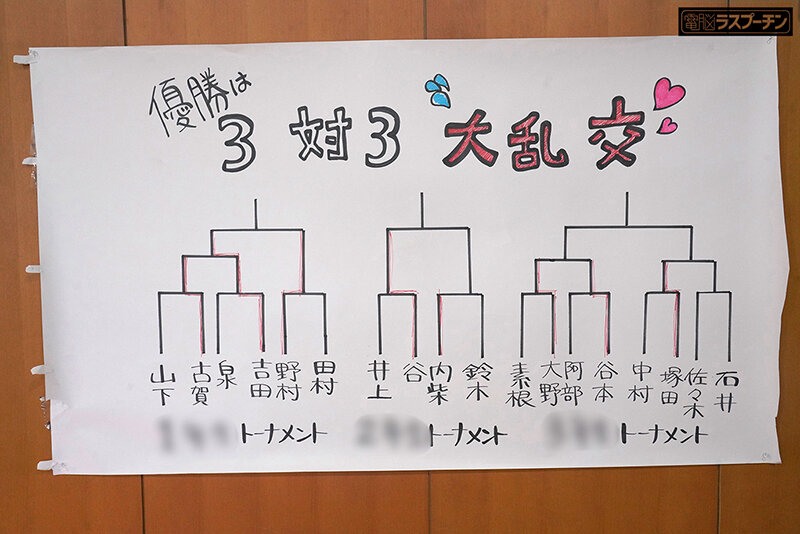 電脳ラスプーチン
優勝は
3対3 大乱交
山下 古賀 泉 吉田 野村 田村 井上 谷 内柴 鈴木 素根 大野 阿部 谷本 中村 塚田 佐々木 石井
トーナメント トーナメント トーナメント